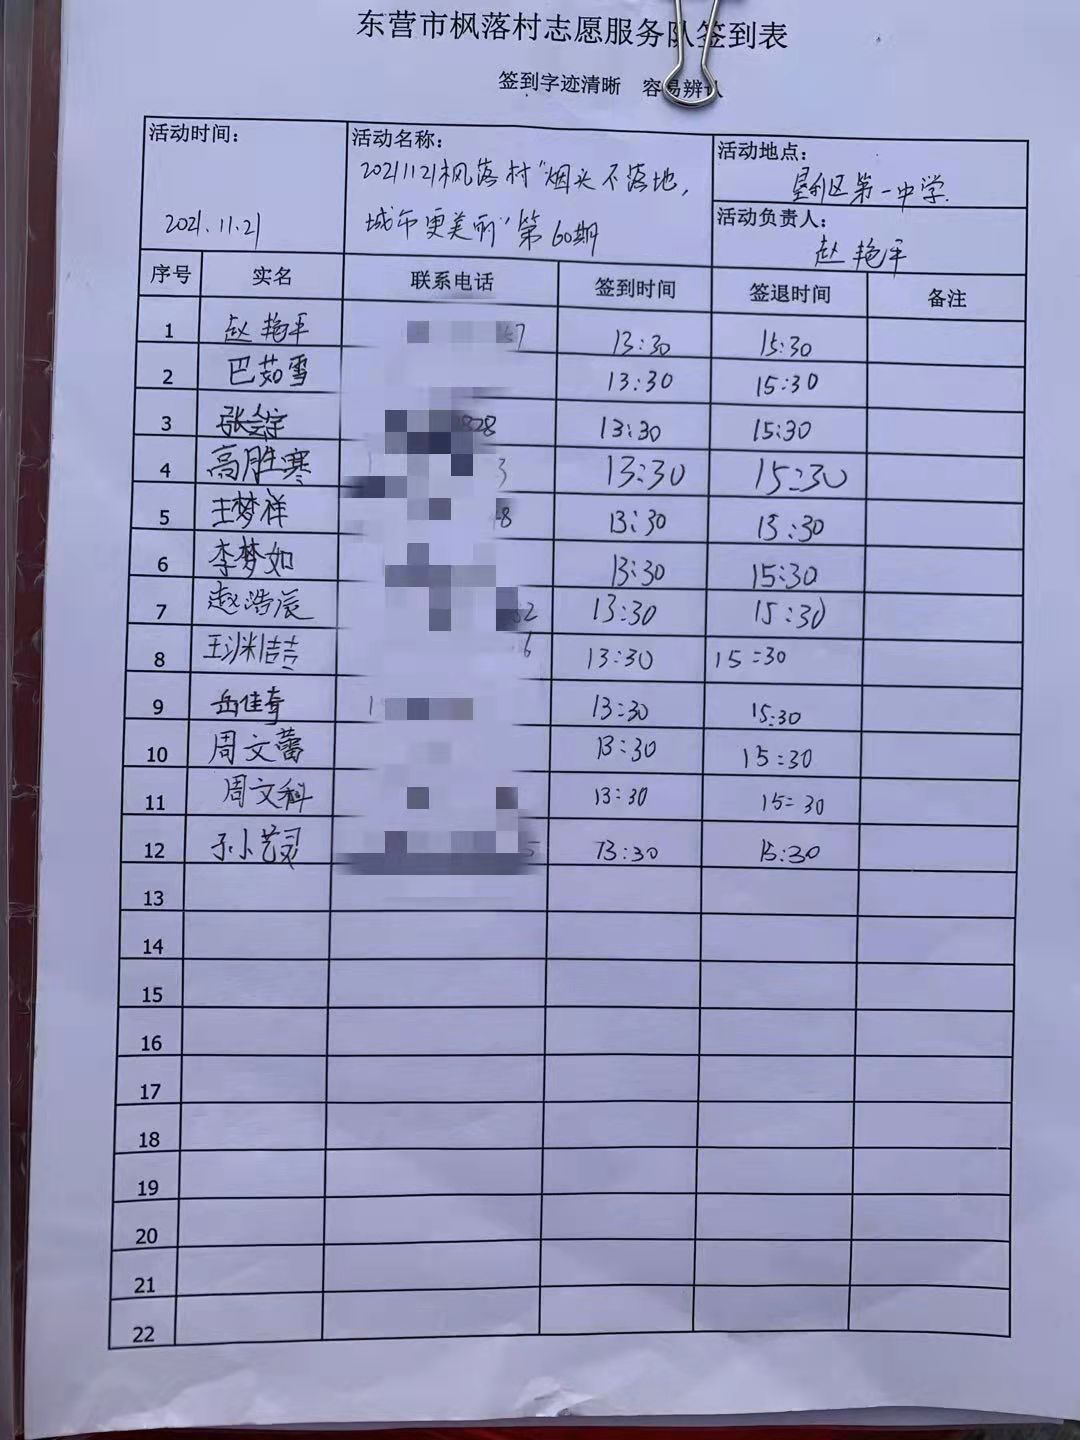 东营市枫落村志愿服务队签到表
签到字迹清晰 容易辨认
活动时间:
2021.11.21
活动名称:
20211121枫落村"烟头不落地,
城市更美丽"第60期
活动地点:
垦利区第一中学
活动负责人:
赵艳平
序号 实名 联系电话 签到时间 签退时间 备注
1 赵艳平 13:30 15:30
2 巴茹雪 13:30 15:30
3 828 13:30 15:30
4 高胜寒 3 13:30 15:30
5 王梦祥 8 13:30 15:30
6 李梦如 13:30 15:30
7 赵浩辰 2 13:30 15:30
8 6 13:30 15:30
9 岳佳奇 13:30 15:30
10 周文蕾 13:30 15:30
11 周文科 13:30 15:30
12 13:30 15:30
13
14
15
16
17
18
19
20
21
22